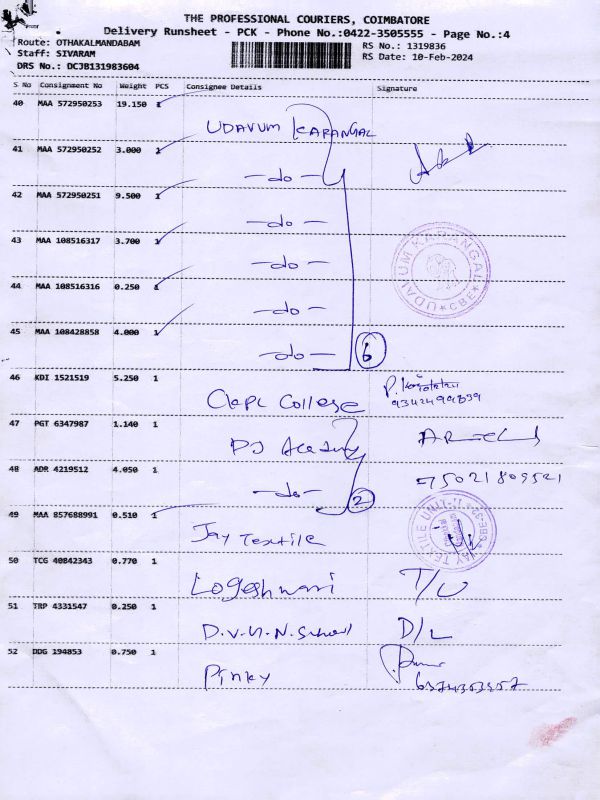 THE PROFESSIONAL COURIERS, COIMBATORE
Delivery Runsheet - PCK - Phone No.:0422-3505555 - Page No.:4
Route: OTHAKALMANDABAM RS No.: 1319836
Staff: SIVARAM RS Date: 10-Feb-2024
DRS No.: DCJB131983604
S No Consignment No Weight PCS Consignee Details Signature
40 MAA 572950253 19.150 1 UDAVUM KARANGAL
41 MAA 572950252 3.000 1 -do-
42 MAA 572950251 9.500 1 -do-
43 MAA 108516317 3.700 1 -do-
UDAVUM KARANGAL CBE
44 MAA 108516316 0.250 1 -do-
45 MAA 108428858 4.000 1 -do- 6
46 KDI 1521519 5.250 1 College
9342499839
47 PGT 6347987 1.140 1 PJ Academy
48 ADR 4219512 4.050 1 -do- 2 75021809521
49 MAA 857688991 0.510 1 Jay Textile
JAY TEXTILE UNIT-II
50 TCG 40842343 0.770 1 Logeshwari T/U
51 TRP 4331547 0.250 1 D.V.N.N. School D/L
52 DDG 194853 0.750 1 Pinky
6374353957